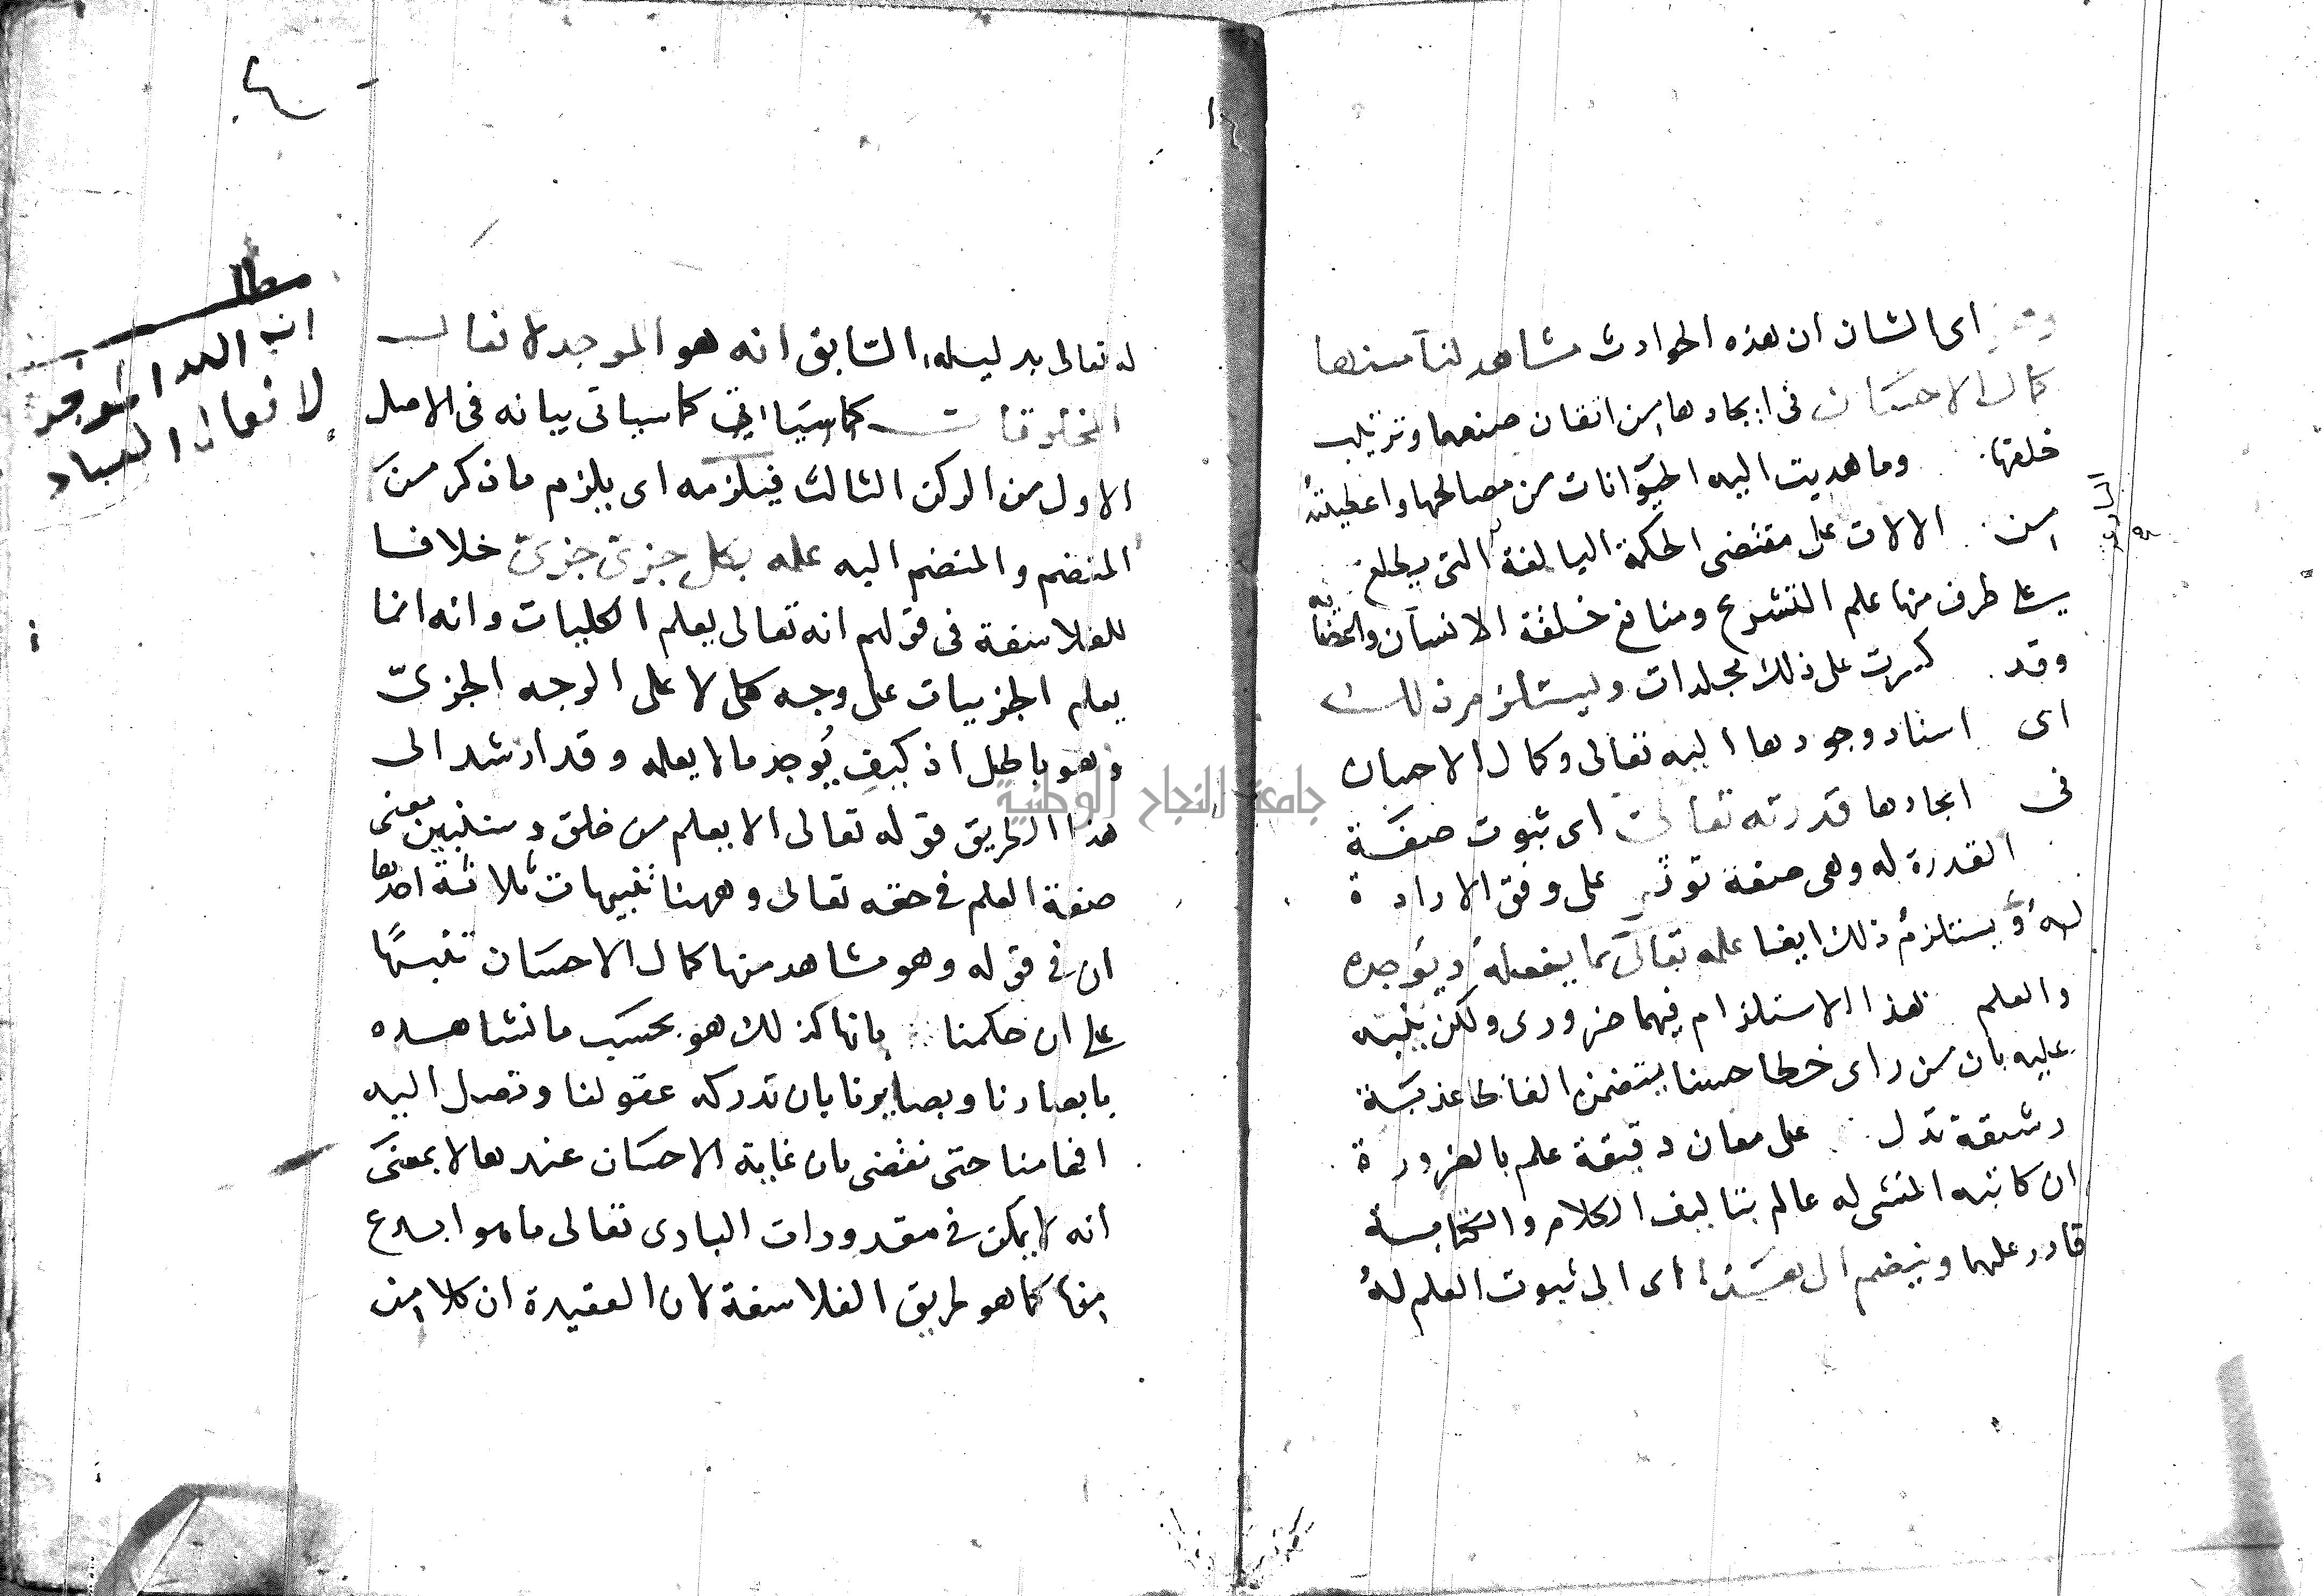 اى الشان ان هذه الحوادث مشاهد لنا منها
كمال الاحسان فى ايجادها من اتقان صنعها وترتيب
خلقها وما هديت اليه الحيوانات من مصالحها واعطيته
من الالات على مقتضى الحكمة البالغة التى يطلع
على طرف منها علم التشريح ومنافع خلقة الانسان واعضائه
وقد كسرت على ذلك مجلدات ويستلزم ذلك
اى اسناد وجودها اليه تعالى وكمال الاحسان
فى ايجادها قدرته تعالى اى ثبوت صفة
القدرة له وهى صفة تؤثر على وفق الارادة
له ويستلزم ذلك ايضا علمه تعالى بما يفعله ويوجده
والعلم بهذا الاستلزام فيهما ضرورى ولكن ينبه
عليه بان من راى خطا حسنا يتضمن الفاظا عذبة
رشيقة تدل على معان دقيقة علم بالضرورة
ان كاتبه المنشى له عالم بتاليف الكلام والكتابة
قادر عليها وينضم الى هذا اى الى ثبوت العلم له
مطلب
ان الله الموجد
لافعال العباد
له تعالى بدليله السابق انه هو الموجد لافعال
المخلوقات كما سياتى كما سياتى بيانه فى الاصل
الاول من الركن الثالث فيلزمه اى يلزم ما ذكر من
المنضم والمنضم اليه علمه بكل جزئ جزئ خلافا
للفلاسفة فى قولهم انه تعالى يعلم الكليات وانه انما
يعلم الجزييات على وجه كلى لا على الوجه الجزئ
وهو باطل اذ كيف يُوجد ما لا يعلمه وقد ارشد الى
هذا الطريق قوله تعالى الا يعلم من خلق وستبين معنى
صفة العلم فى حقه تعالى وههنا تنبيهات ثلاثة احدها
ان فى قوله وهو مشاهد منها كمال الاحسان تنبيهًا
على ان حكمنا بانها كذلك هو بحسب ما نشاهده
بابصارنا وبصايرنا بان تدركه عقولنا وتصل اليه
افهامنا حتى نقضى بان غاية الاحسان عندها لا بمعنى
انه لا يمكن فى مقدورات البارى تعالى ما هو ابدع
منها كما هو طريق الفلاسفة لان العقيدة ان كلا من
جامعة النجاح الوطنية